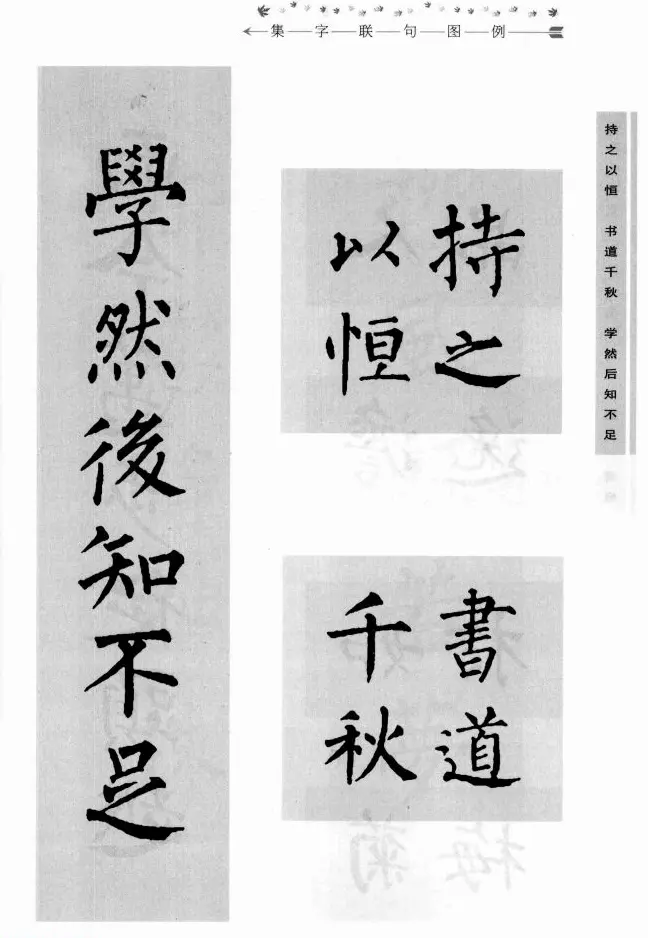 集字联句图例
持之以恒 书道千秋 学然后知不足
持之
以恒
書道
千秋
學然後知不足